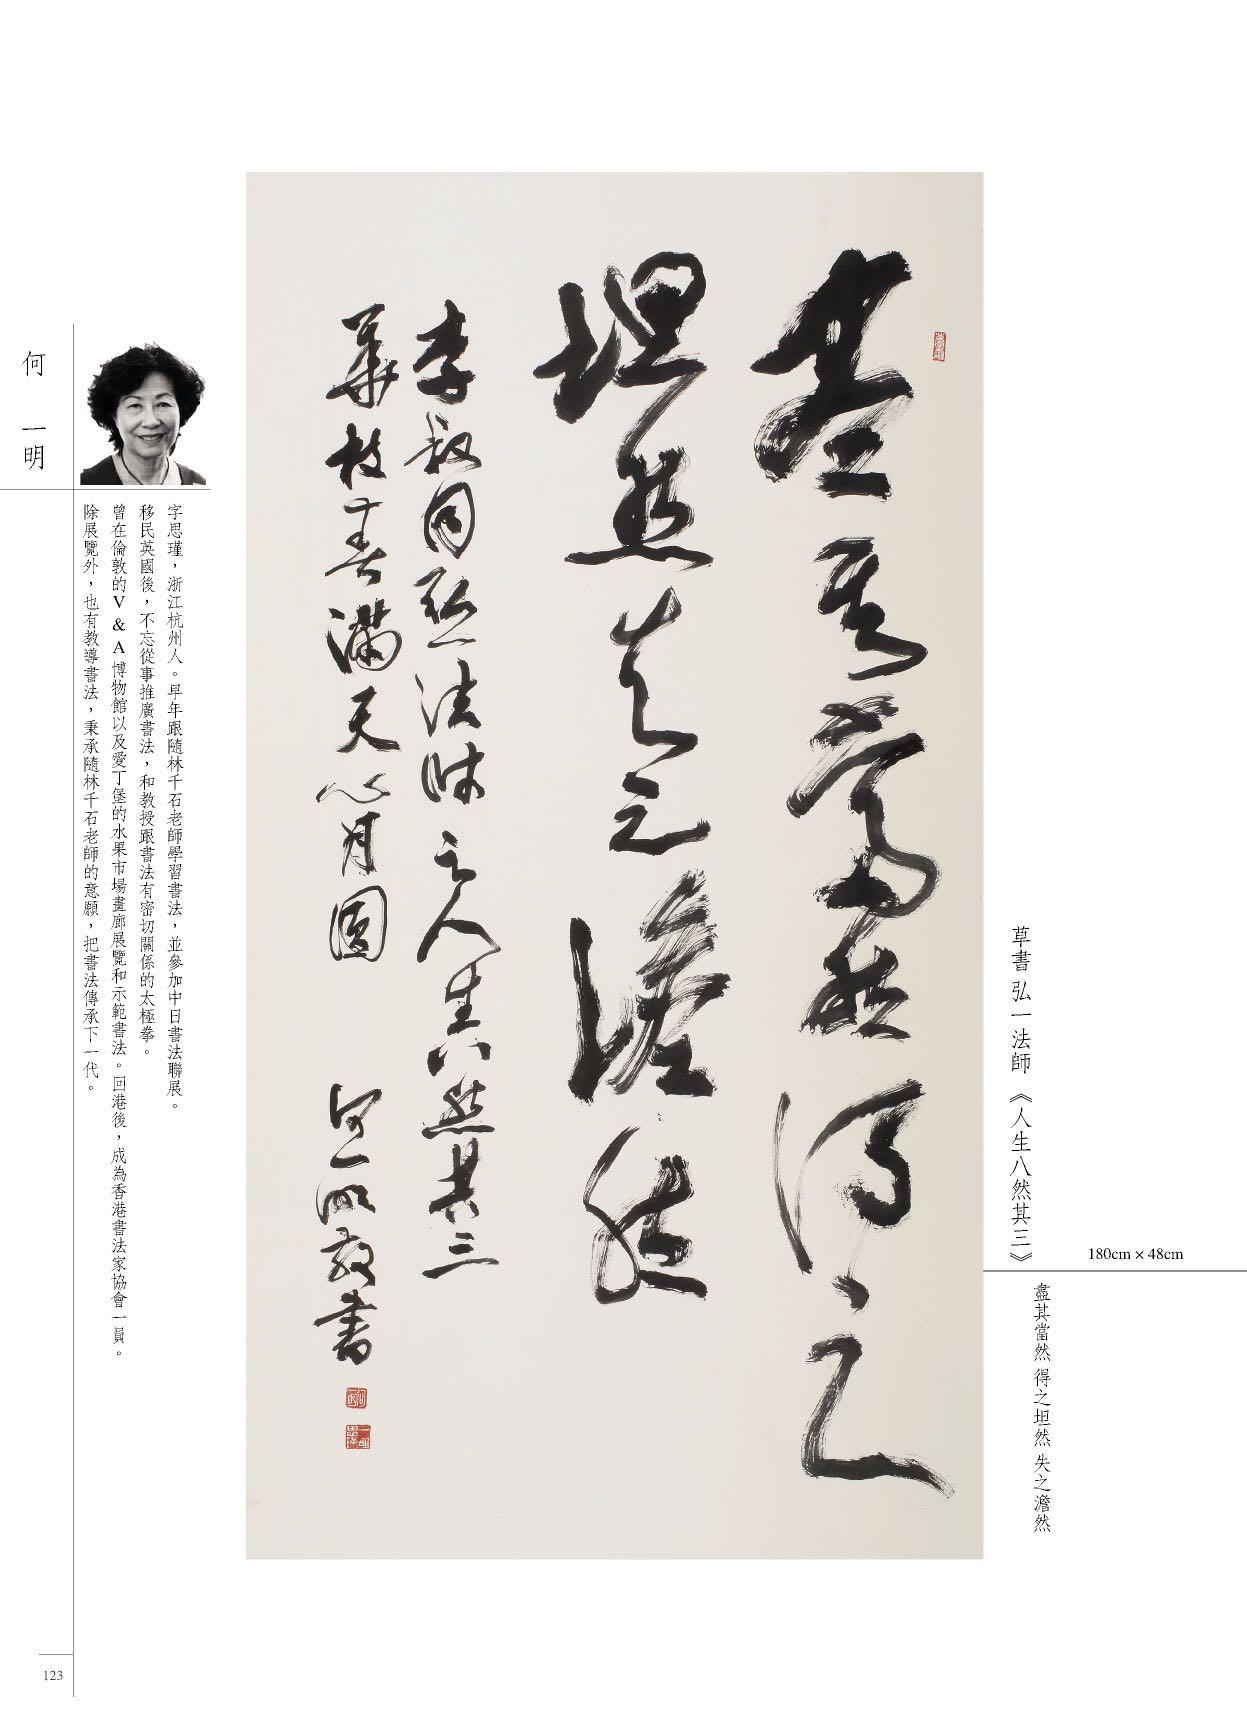 盡其當然得之
坦然失之澹然
李叔同弘一法師之人生八然其三
華枝春滿天心月圓 何一明敬書
草書 弘一法師《人生八然其三》
180cm × 48cm
盡其當然 得之坦然 失之澹然
何一明
字思瑾，浙江杭州人。早年跟隨林千石老師學習書法，並參加中日書法聯展。
移民英國後，不忘從事推廣書法，和教授跟書法有密切關係的太極拳。
曾在倫敦的V & A 博物館以及愛丁堡的水果市場畫廊展覽和示範書法。回港後，成為香港書法家協會一員。
除展覽外，也有教導書法，秉承隨林千石老師的意願，把書法傳承下一代。
123